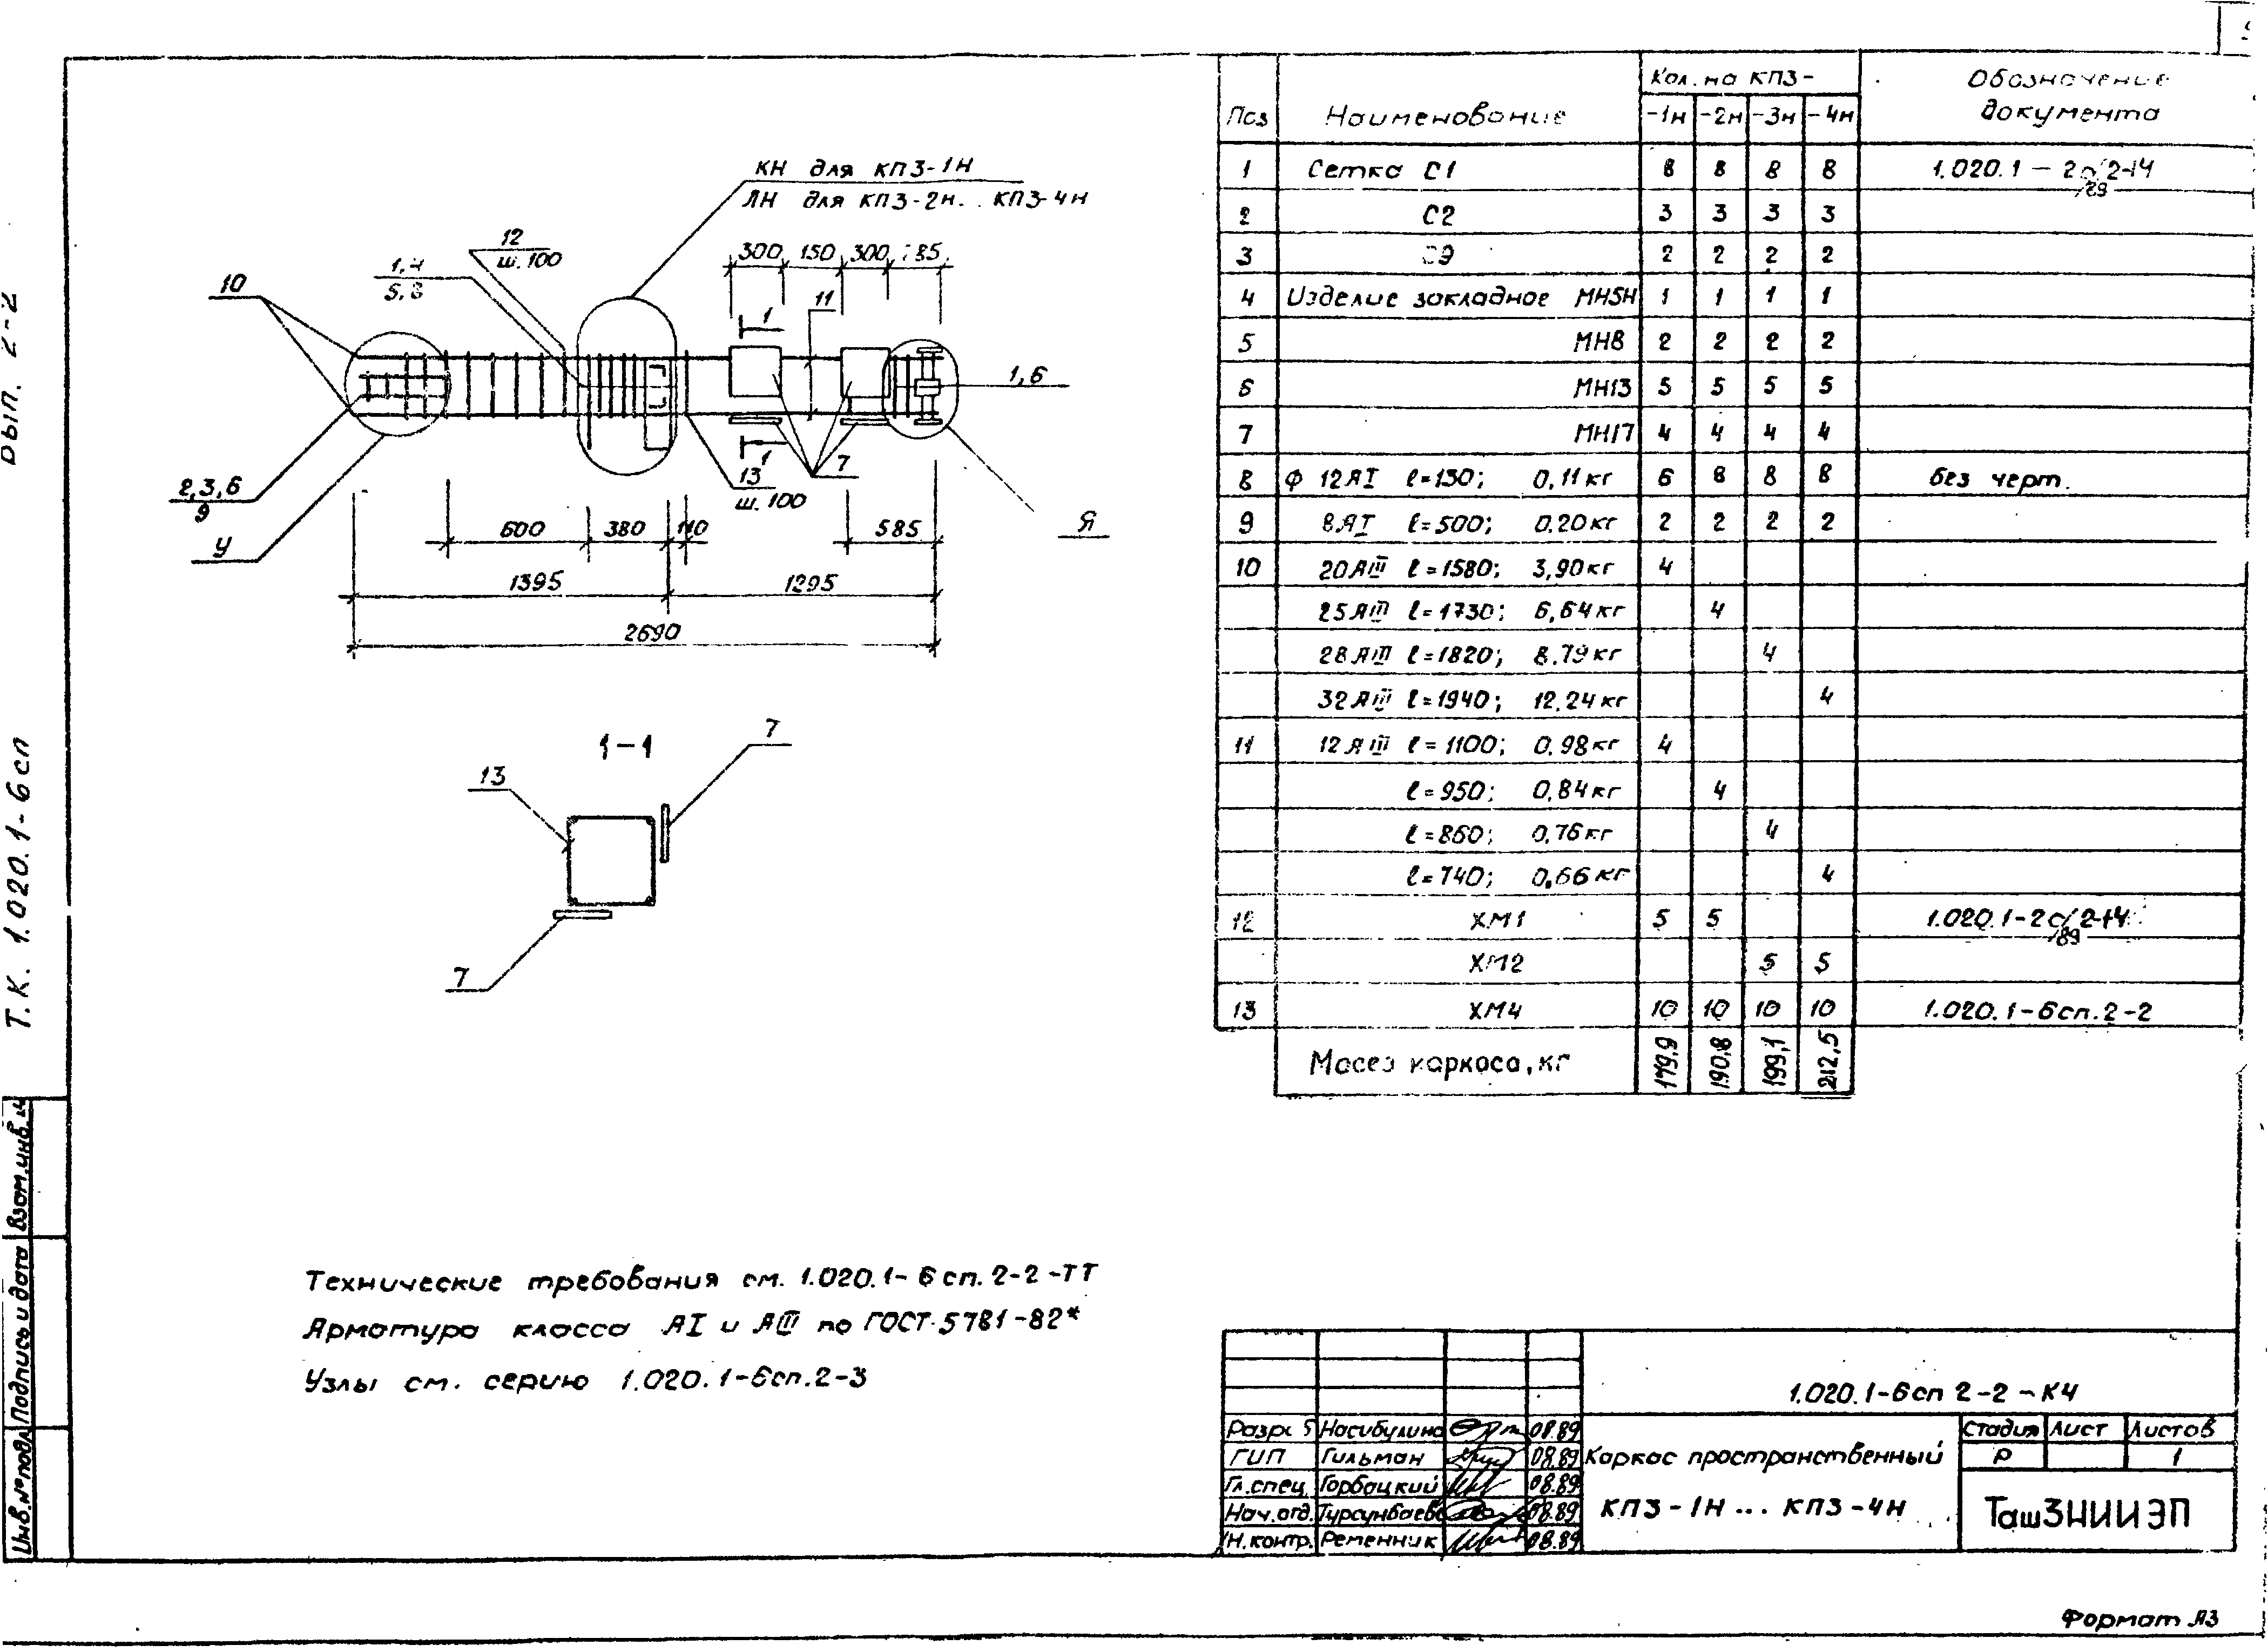 Вып. 2-2
Т.К. 1.020.1-6сп
КН для КП3-1Н
ЛН для КП3-2Н.. КП3-4Н
12
ш.100
1,4
5,8
10
300 150 300 785
11
1
1,6
1
7
13
ш.100
2,3,6
9
У
Я
600 380 110 585
1395 1295
2690
1-1
7
13
7
Поз Наименование Кол. на КП3- Обозначение документа
-1н -2н -3н -4н
1 Сетка С1 8 8 8 8 1.020.1-2с/89 2-14
2 С2 3 3 3 3
3 2 2 2 2
4 Изделие закладное МН5Н 1 1 1 1
5 МН8 2 2 2 2
6 МН13 5 5 5 5
7 МН17 4 4 4 4
8 Ф 12АI ℓ=130; 0,11кг 6 8 8 8 без черт.
9 8АI ℓ=500; 0.20кг 2 2 2 2
10 20АIII ℓ=1580; 3,90кг 4
25АIII ℓ=1730; 6,64кг 4
28АIII ℓ=1820; 8.79кг 4
32АIII ℓ=1940; 12.24кг 4
11 12АIII ℓ=1100; 0.98кг 4
ℓ=950; 0,84кг 4
ℓ=860; 0,76кг 4
ℓ=740; 0,66кг 4
12 ХМ1 5 5 1.020.1-2с/89 2-14
ХМ2 5 5
13 ХМ4 10 10 10 10 1.020.1-6сп.2-2
Масса каркаса, кг 179,9 190,8 199,1 212,5
Технические требования см. 1.020.1-6сп.2-2-ТТ
Арматура класса АI и АIII по ГОСТ 5781-82*
Узлы см. серию 1.020.1-6сп.2-3
Инв.№подл. Подпись и дата Взам.инв.№
1.020.1-6сп 2-2-К4
Разраб Насибулина 08.89
ГИП Гильман 08.89
Гл.спец. Горбацкий 08.89
Нач.отд. Турсунбаева 08.89
Н.контр. Ременник 08.89
Каркас пространственный
КП3-1Н ... КП3-4Н
Стадия Лист Листов
Р 1
ТашЗНИИЭП
Формат А3